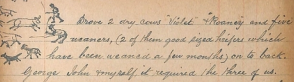 Drove 2 dry cows "Violet" & "Roaney" and five
weaners, (2 of them good sized heifers which
have been weaned a few months) on to back.
George John & myself it required the three of us.